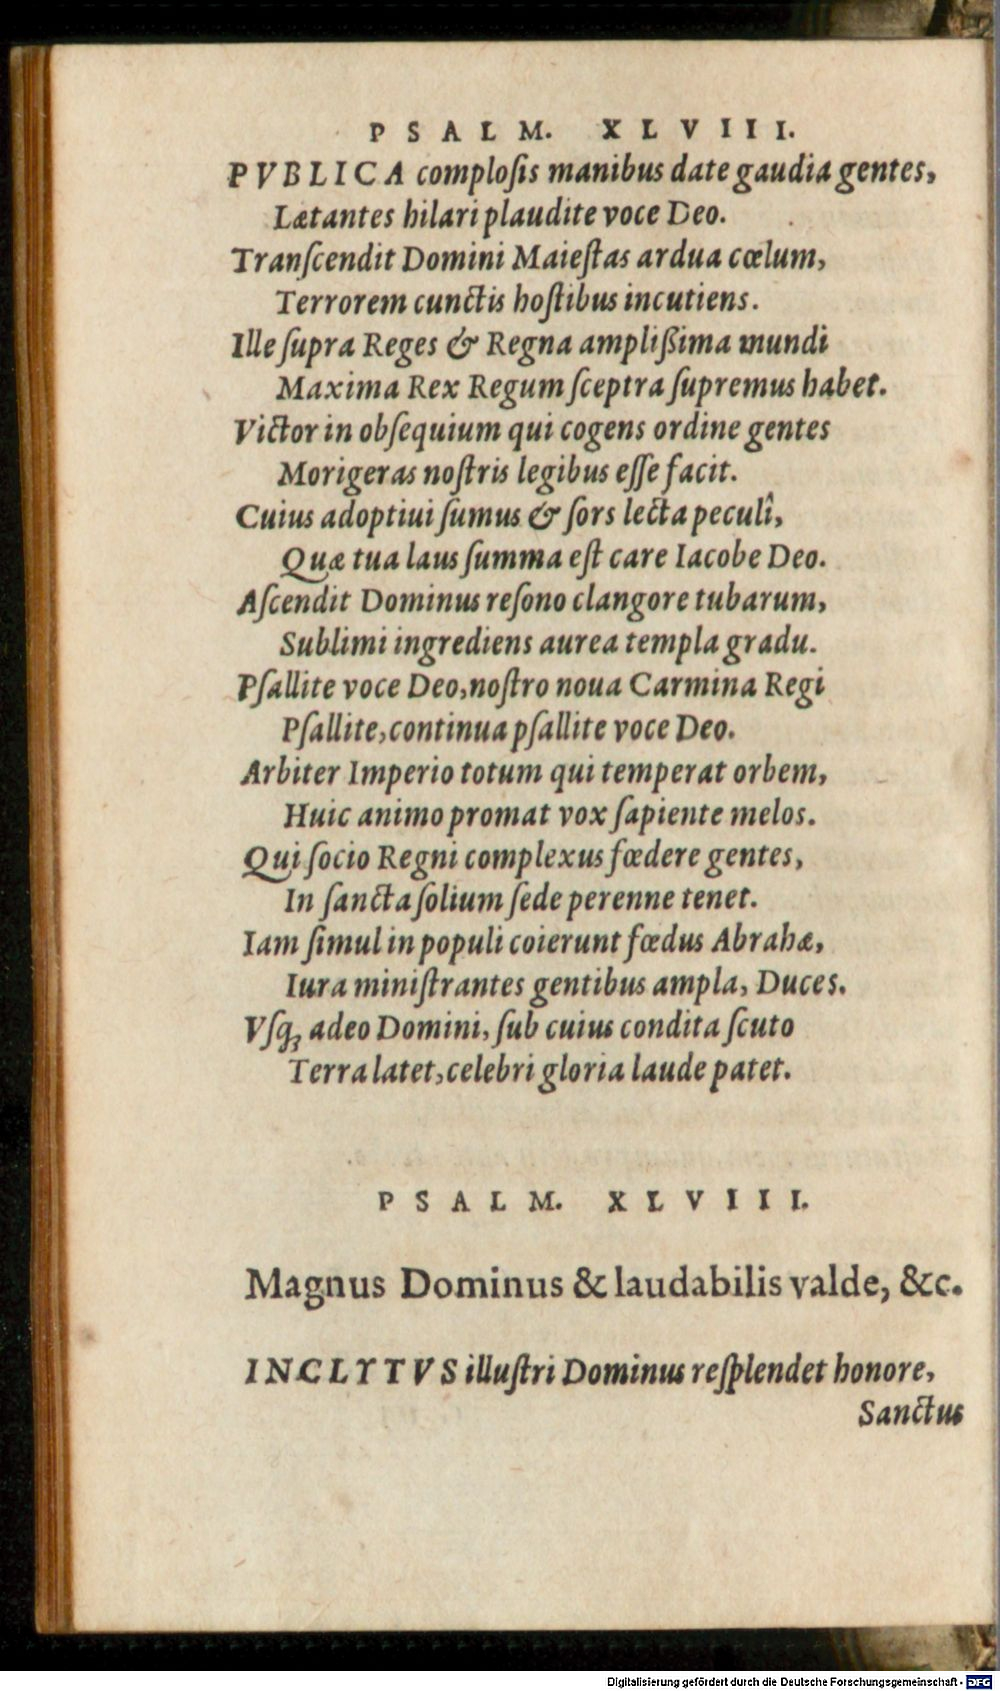 PSALM. XLVIII.
PVBLICA comploſis manibus date gaudia gentes,
Lætantes hilari plaudite voce Deo.
Tranſcendit Domini Maieſtas ardua cœlum,
Terrorem cunctis hoſtibus incutiens.
Ille ſupra Reges & Regna ampliſsima mundi
Maxima Rex Regum ſceptra ſupremus habet.
Victor in obſequium qui cogens ordine gentes
Morigeras noſtris legibus eſſe facit.
Cuius adoptiui ſumus & ſors lecta peculî,
Quæ tua laus ſumma eſt care Iacobe Deo.
Aſcendit Dominus reſono clangore tubarum,
Sublimi ingrediens aurea templa gradu.
Pſallite voce Deo, noſtro noua Carmina Regi
Pſallite, continua pſallite voce Deo.
Arbiter Imperio totum qui temperat orbem,
Huic animo promat vox ſapiente melos.
Qui ſocio Regni complexus fœdere gentes,
In ſancta ſolium ſede perenne tenet.
Iam ſimul in populi coierunt fœdus Abrahæ,
Iura miniſtrantes gentibus ampla, Duces.
Vſq; adeo Domini, ſub cuius condita ſcuto
Terra latet, celebri gloria laude patet.
PSALM. XLVIII.
Magnus Dominus & laudabilis valde, &c.
INCLYTVS illuſtri Dominus reſplendet honore,
Sanctus
Digitalisierung gefördert durch die Deutsche Forschungsgemeinschaft - DFG